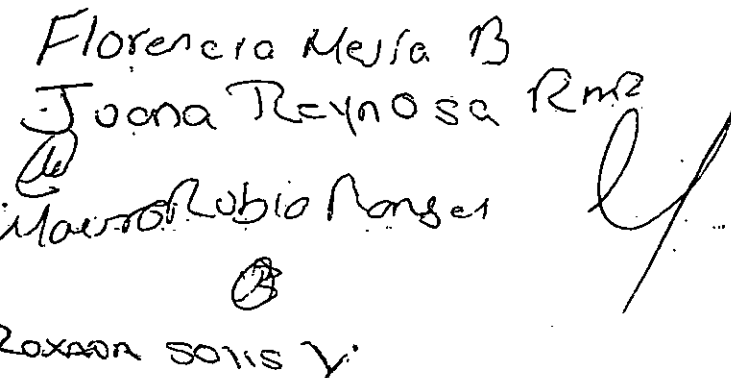 Florencia Mejía B
Juana Reynosa Rmz
Mauro Rubio Rangel
Roxana Solis V.